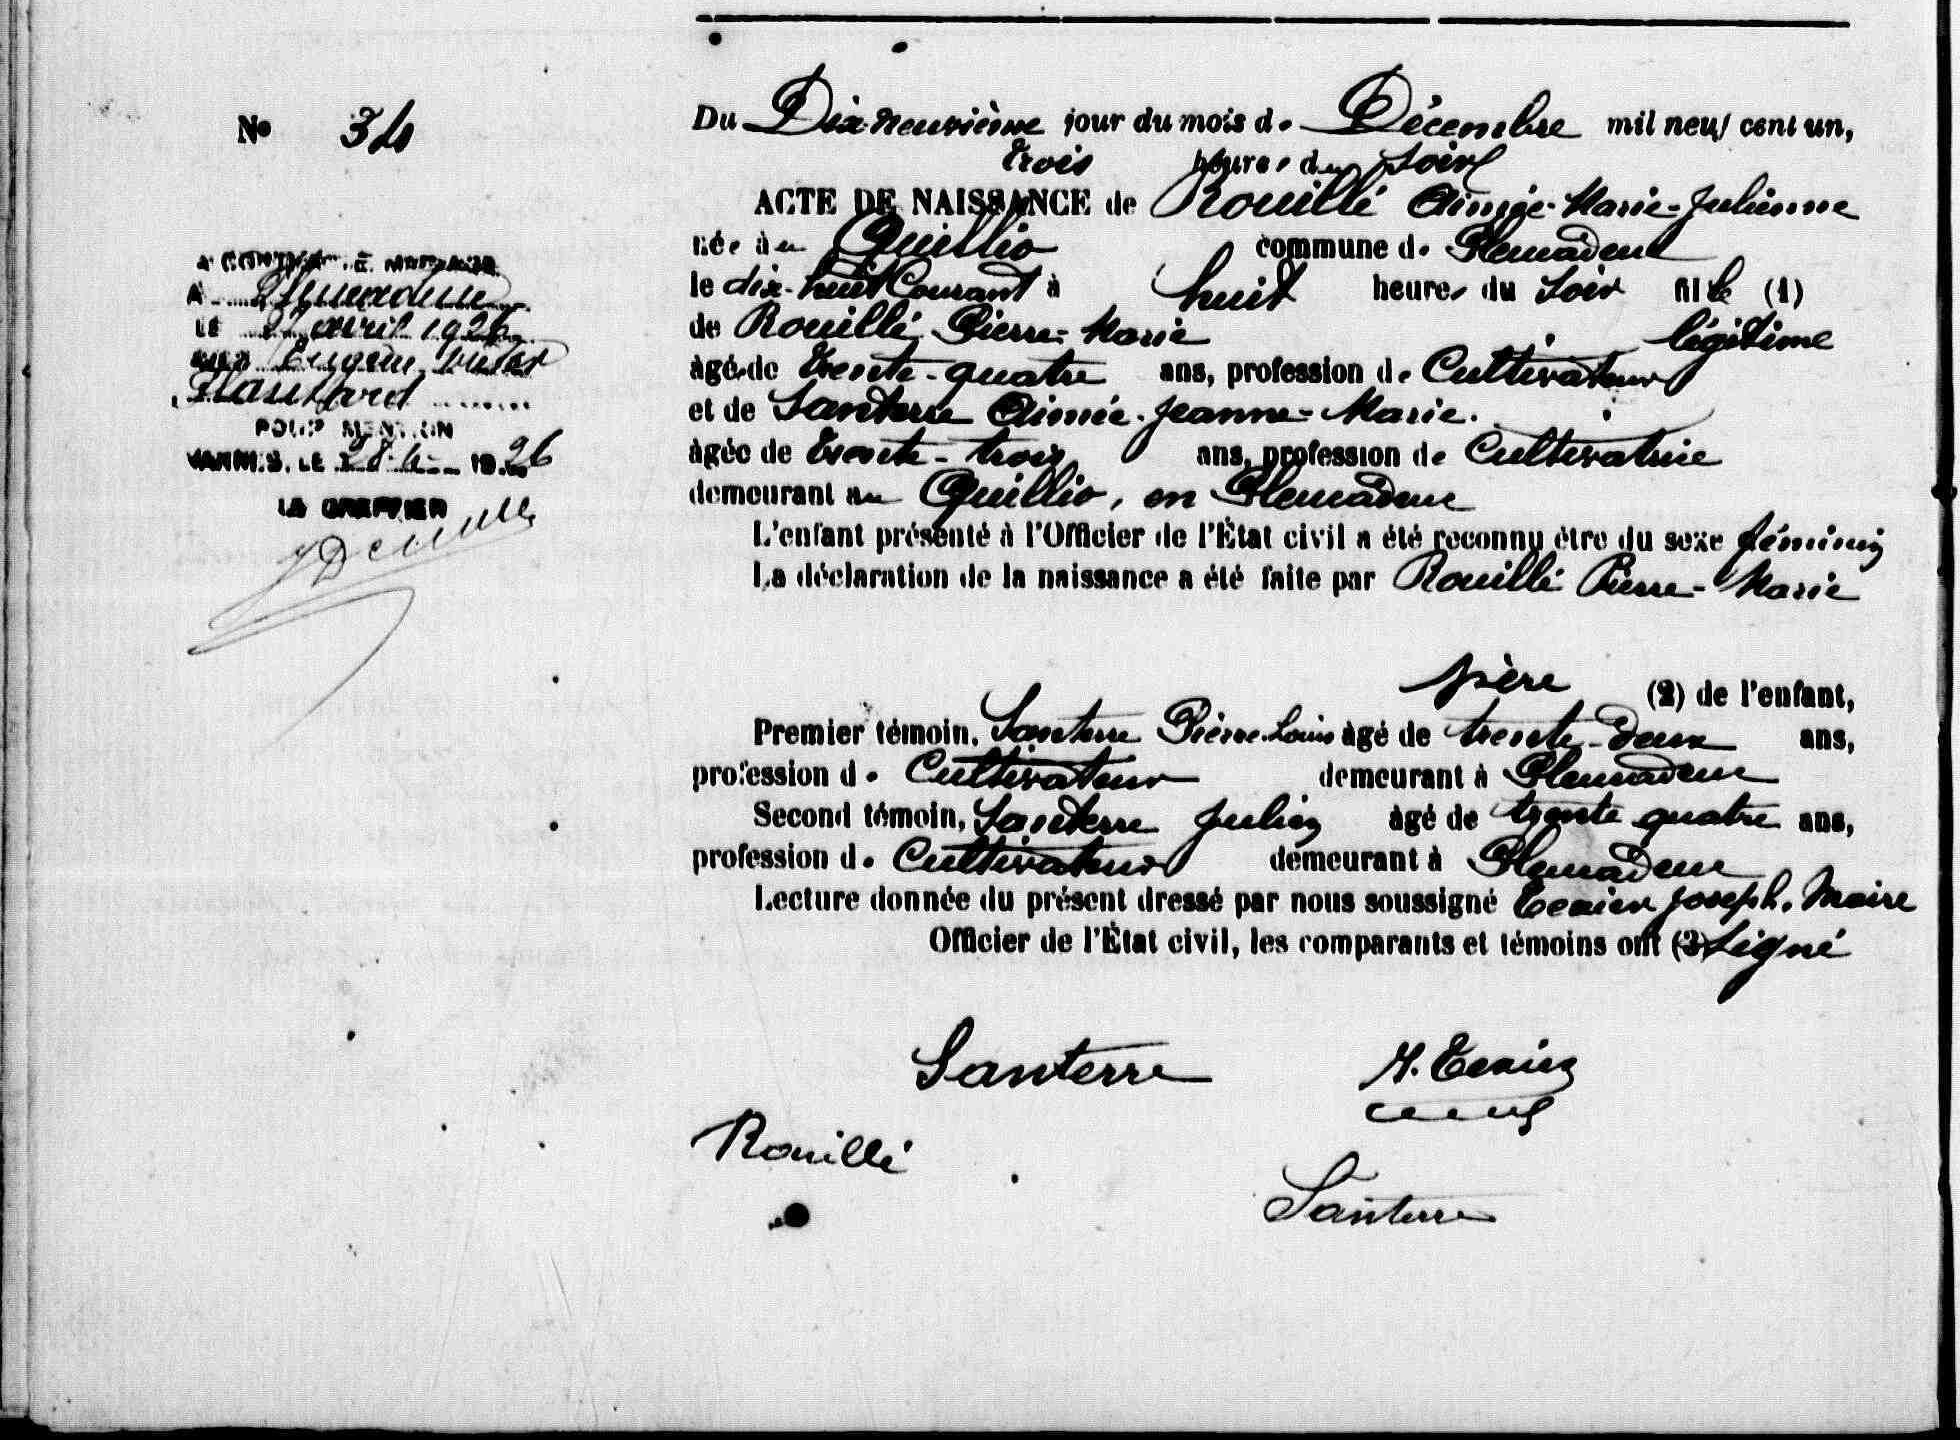 Nº 34
A CONTRACTÉ MARIAGE
A
LE avril 1926
AVEC Eugène
POUR MENTION
VANNES, LE 28-4- 1926
LE GREFFIER
Du Dix-neuvième jour du mois de Décembre mil neuf cent un,
trois heures du soir
ACTE DE NAISSANCE de Rouillé Aimée-Marie-Julienne
née à u Quillio commune de Pleucadeuc
le dix-huit Courant à huit heures du soir fille (1)
de Rouillé Pierre-Marie légitime
âgé de trente-quatre ans, profession de Cultivateur
et de Santerre Aimée-Jeanne-Marie.
âgée de trente-trois ans, profession de Cultivatrice
demeurant au Quillio, en Pleucadeuc
L'enfant présenté à l'Officier de l'État civil a été reconnu être du sexe féminin
La déclaration de la naissance a été faite par Rouillé Pierre-Marie
père (2) de l'enfant,
Premier témoin, Santerre Pierre-Louis âgé de trente-deux ans,
profession de Cultivateur demeurant à Pleucadeuc
Second témoin, Santerre Julien âgé de trente quatre ans,
profession de Cultivateur demeurant à Pleucadeuc
Lecture donnée du présent dressé par nous soussigné Joseph, Maire
Officier de l'État civil, les comparants et témoins ont (3) signé
Santerre
Rouillé
Santerre